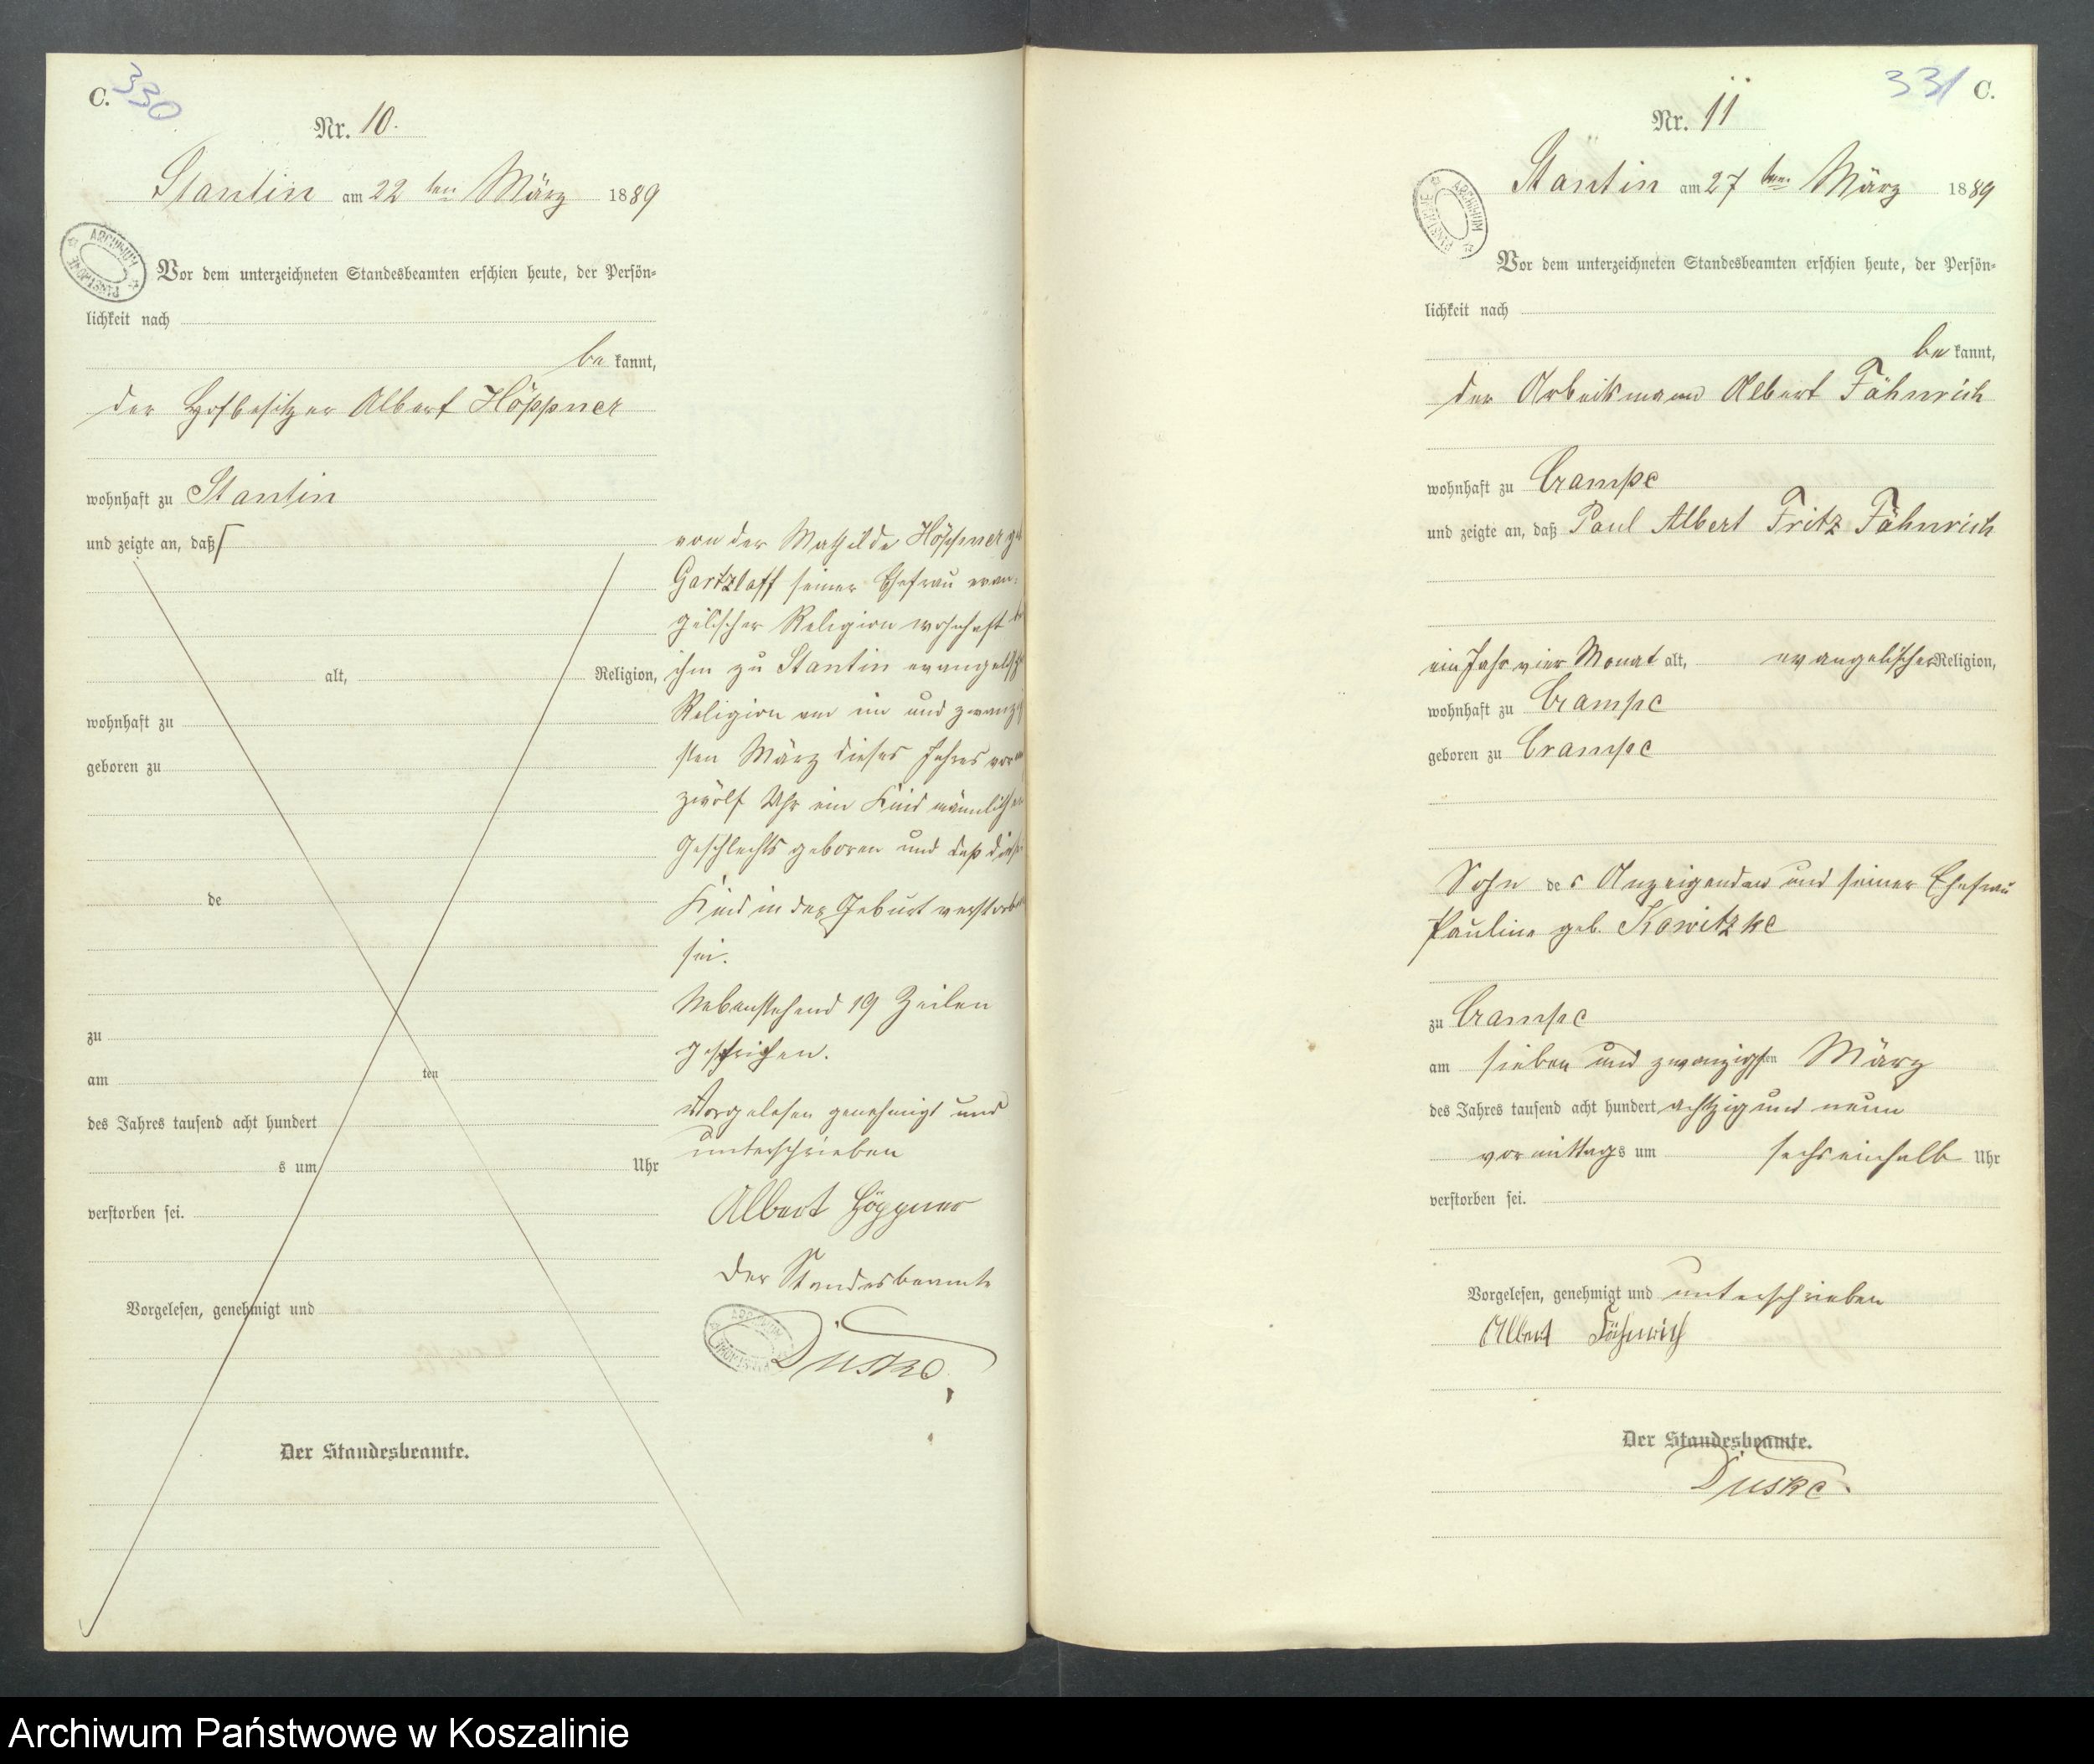 C. 330
Nr. 10.
Stantin am 22 ten März 1889
ARCHIWUM PAŃSTWOWE
Vor dem unterzeichneten Standesbeamten erschien heute, der Persön-
lichkeit nach
be kannt,
der Hofbesitzer Albert Höppner
wohnhaft zu Stantin
und zeigte an, daß
alt, Religion,
wohnhaft zu
geboren zu
de
zu
am ten
des Jahres tausend acht hundert
s um Uhr
verstorben sei.
Vorgelesen, genehmigt und
Der Standesbeamte.
von der Mathilde Höppner
Gartzlaff seiner Ehefrau evan-
gelischer Religion wohnhaft
ihm zu Stantin
Religion am ein und
sten März dieses Jahres
zwölf Uhr ein Kind
Geschlechts geboren und daß
Kind in der Geburt
sei.
Nebenstehend 19 Zeilen
gestrichen.
Vorgelesen genehmigt und
unterschrieben
Albert Höppner
Der Standesbeamte
ARCHIWUM PAŃSTWOWE
Duske
331 C.
Nr. 11
Stantin am 27 ten März 1889
ARCHIWUM PAŃSTWOWE
Vor dem unterzeichneten Standesbeamten erschien heute, der Persön-
lichkeit nach
be kannt,
der Arbeitsmann Albert Fähnrich
wohnhaft zu Crampe
und zeigte an, daß Paul Albert Fritz Fähnrich
ein Jahr vier Monat alt, evangelischer Religion,
wohnhaft zu Crampe
geboren zu Crampe
Sohn des Anzeigenden und seiner Ehefrau
Pauline geb. Kowitzke
zu Crampe
am sieben und zwanzigsten März
des Jahres tausend acht hundert achtzig und neun
vormittags um sechseinhalb Uhr
verstorben sei.
Vorgelesen, genehmigt und unterschrieben
Albert Fähnrich
Der Standesbeamte.
Duske
Archiwum Państwowe w Koszalinie